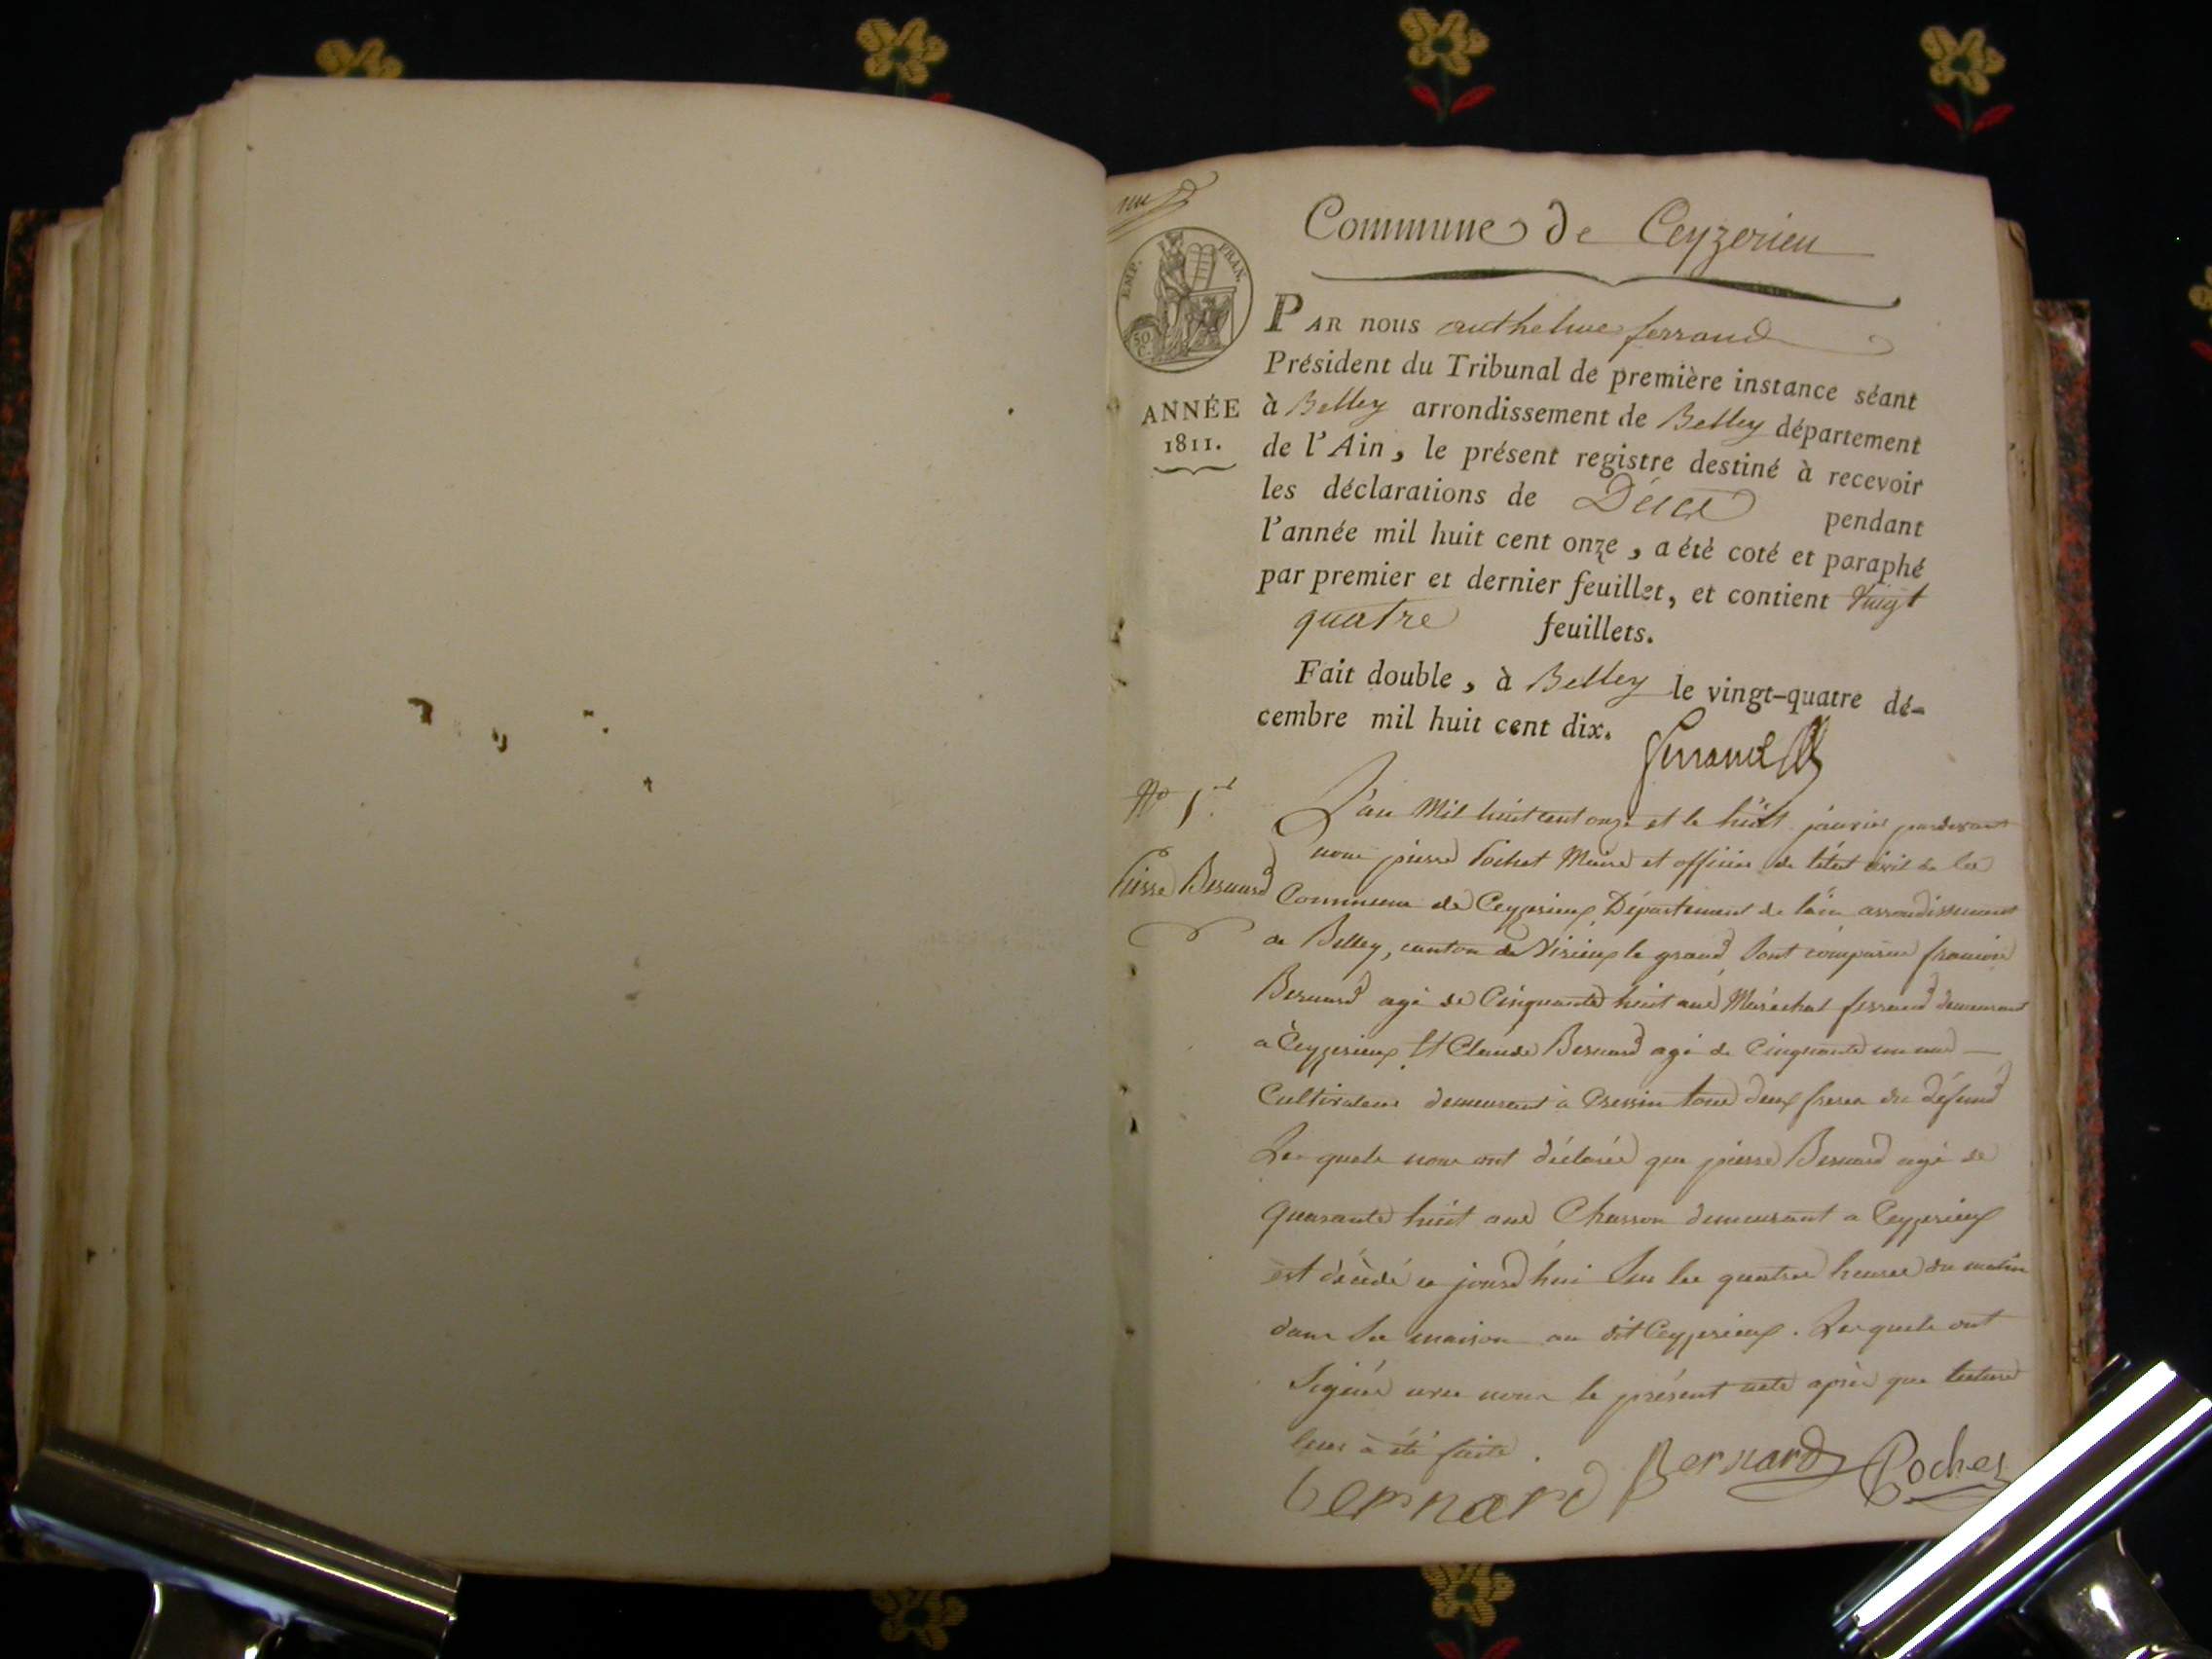 Commune de Ceyzerieu
EMP. FRAN.
50
C.
PAR nous anthelme ferrand
Président du Tribunal de première instance séant
ANNÉE
1811.
à Belley arrondissement de Belley département
de l'Ain, le présent registre destiné à recevoir
les déclarations de Décès pendant
l'année mil huit cent onze, a été coté et paraphé
par premier et dernier feuillet, et contient vingt
quatre feuillets.
Fait double, à Belley le vingt-quatre dé-
cembre mil huit cent dix. ferrand
No 1er
L'an Mil huit cent onze et le huit janvier pardevant
nous pierre Pochet Maire et officier de l'état civil de la
Pierre Bernard
Commune de Ceyzerieux Département de l'ain arrondissement
de Belley, canton de Virieux le grand Sont comparus francois
Bernard agé de Cinquante huit ans Maréchal ferrand demeurant
a Ceyzerieux Et Claude Bernard agé de Cinquante un ans
Cultivateur demeurant à Cressin tous deux freres du défund
Les quels nous ont déclarés que pierre Bernard agé de
quarante huit ans Charron demeurant a Ceyzerieux
est décédé ce jourd'hui Sur les quatres heures du matin
dans Sa maison au dit Ceyzerieux. Les quels ont
Signés avec nous le présent acte après que lecture
leur à été faite.
bernard Bernard Pochet